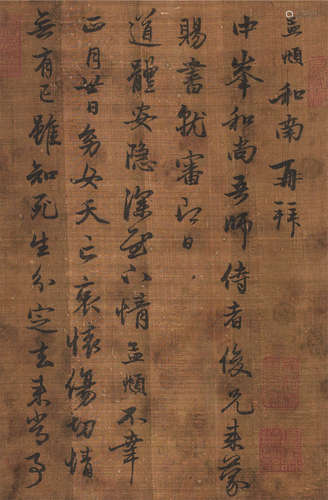 孟頫和南再拜
中峯和尚吾師侍者俊兄来蒙
賜書就審即日
道體安隐深慰下情孟頫不幸
正月廿日幼女夭亡哀懐傷切情
無有已雖知死生分定去来常事